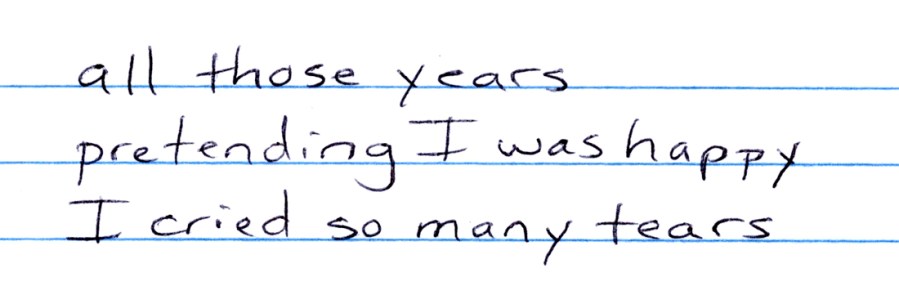 all those years
pretending I was happy
I cried so many tears